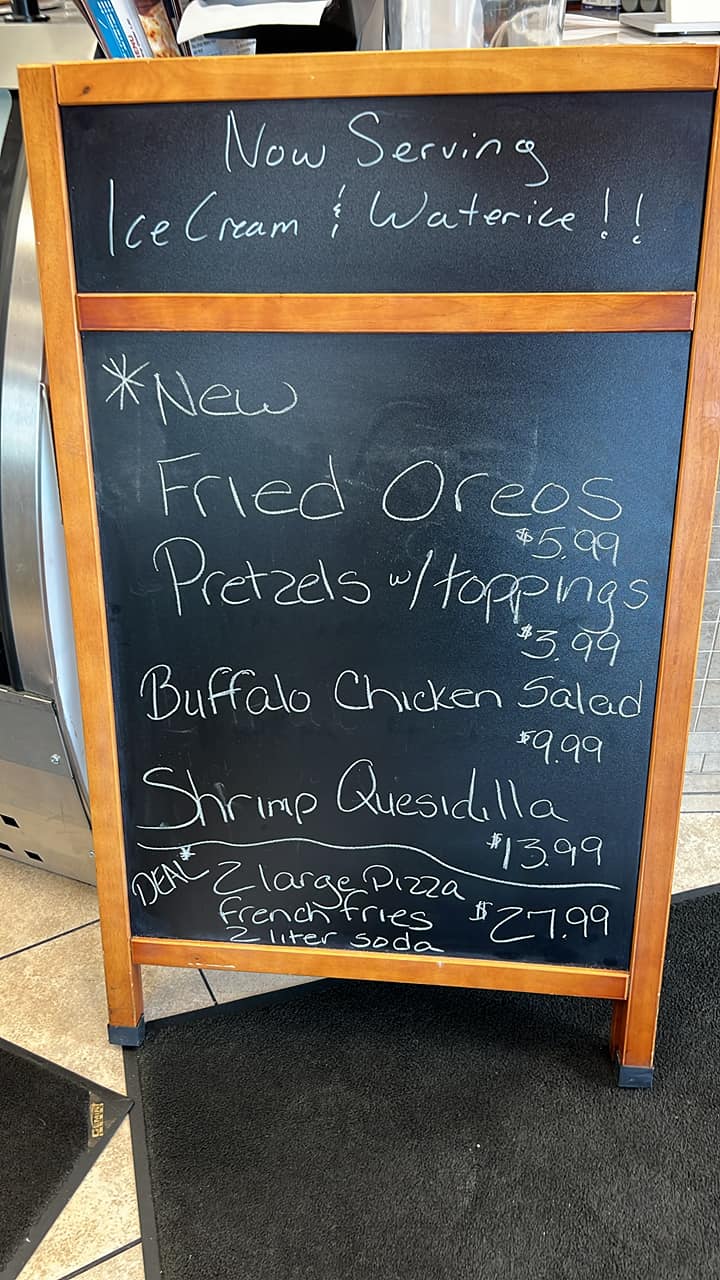 Now Serving
Ice Cream & Waterice!!
*New
Fried Oreos
$5.99
Pretzels w/toppings
$3.99
Buffalo Chicken Salad
$9.99
Shrimp Quesidilla
$13.99
DEAL* 2 large Pizza
french fries $27.99
2 liter soda